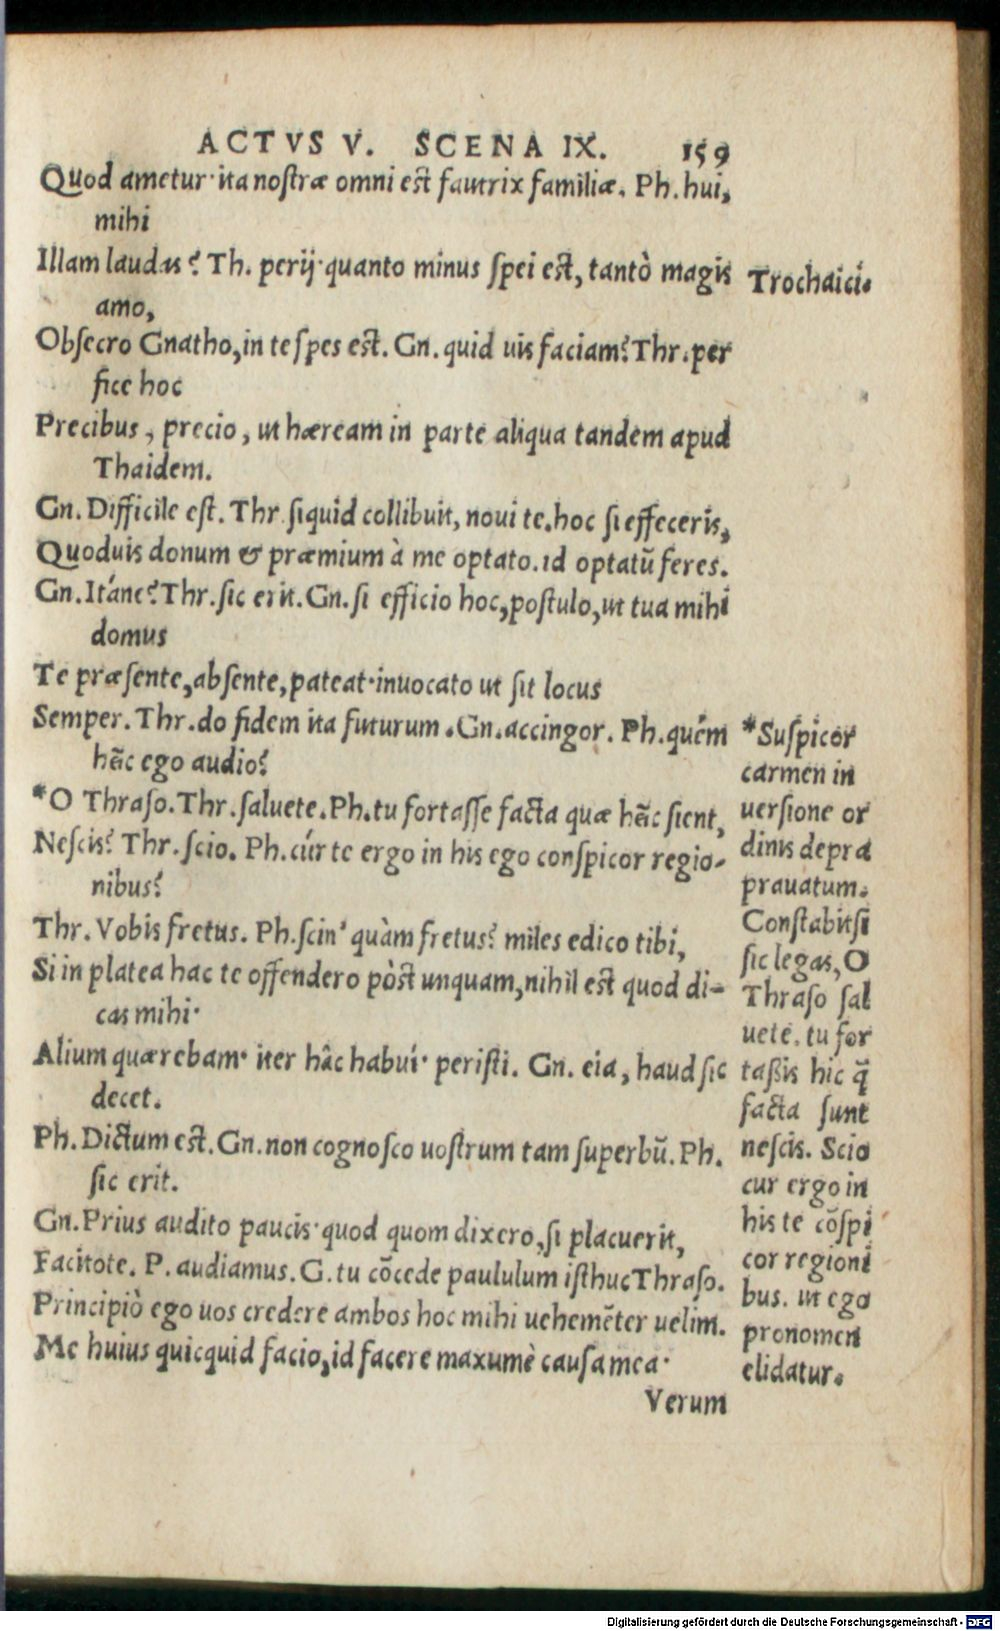 ACTVS V. SCENA IX. 159
Quod ametur· ita nostræ omni est fautrix familiæ. Ph. hui,
mihi
Illam laudas? Th. perij· quanto minus spei est, tantò magis
amo,
Obsecro Gnatho, in te spes est. Gn. quid uis faciam? Thr. per
fice hoc
Precibus, precio, ut hæream in parte aliqua tandem apud
Thaidem.
Gn. Difficile est. Thr. siquid collibuit, noui te. hoc si effeceris,
Quoduis donum & præmium à me optato. id optatū feres.
Gn. Itáne? Thr. sic erit. Gn. si efficio hoc, postulo, ut tua mihi
domus
Te præsente, absente, pateat· inuocato ut sit locus
Semper. Thr. do fidem ita futurum. Gn. accingor. Ph. quém
hîc ego audio?
*O Thraso. Thr. saluete. Ph. tu fortasse facta quæ hîc sient,
Nescis? Thr. scio. Ph. cúr te ergo in his ego conspicor regio-
nibus?
Thr. Vobis fretus. Ph. scin' quàm fretus? miles edico tibi,
Si in platea hac te offendero pòst unquam, nihil est quod di-
cas mihi·
Alium quærebam· iter hâc habui· peristi. Gn. eia, haud sic
decet.
Ph. Dictum est. Gn. non cognosco uostrum tam superbū. Ph.
sic erit.
Gn. Prius audito paucis· quod quom dixero, si placuerit,
Facitote. P. audiamus. G. tu cōcede paululum isthuc Thraso.
Principiò ego uos credere ambos hoc mihi uehemēter uelim.
Me huius quicquid facio, id facere maxumè causa mea·
Verum
Trochaici.
*Suspicor
carmen in
uersione or
dinis depra
prauatum.
Constabit si
sic legas, O
Thraso sal
uete. tu for
tassis hic q̄
facta sunt
nescis. Scio
cur ergo in
his te cōspi
cor regioni
bus. ut ego
pronomen
elidatur.
Digitalisierung gefördert durch die Deutsche Forschungsgemeinschaft - DFG